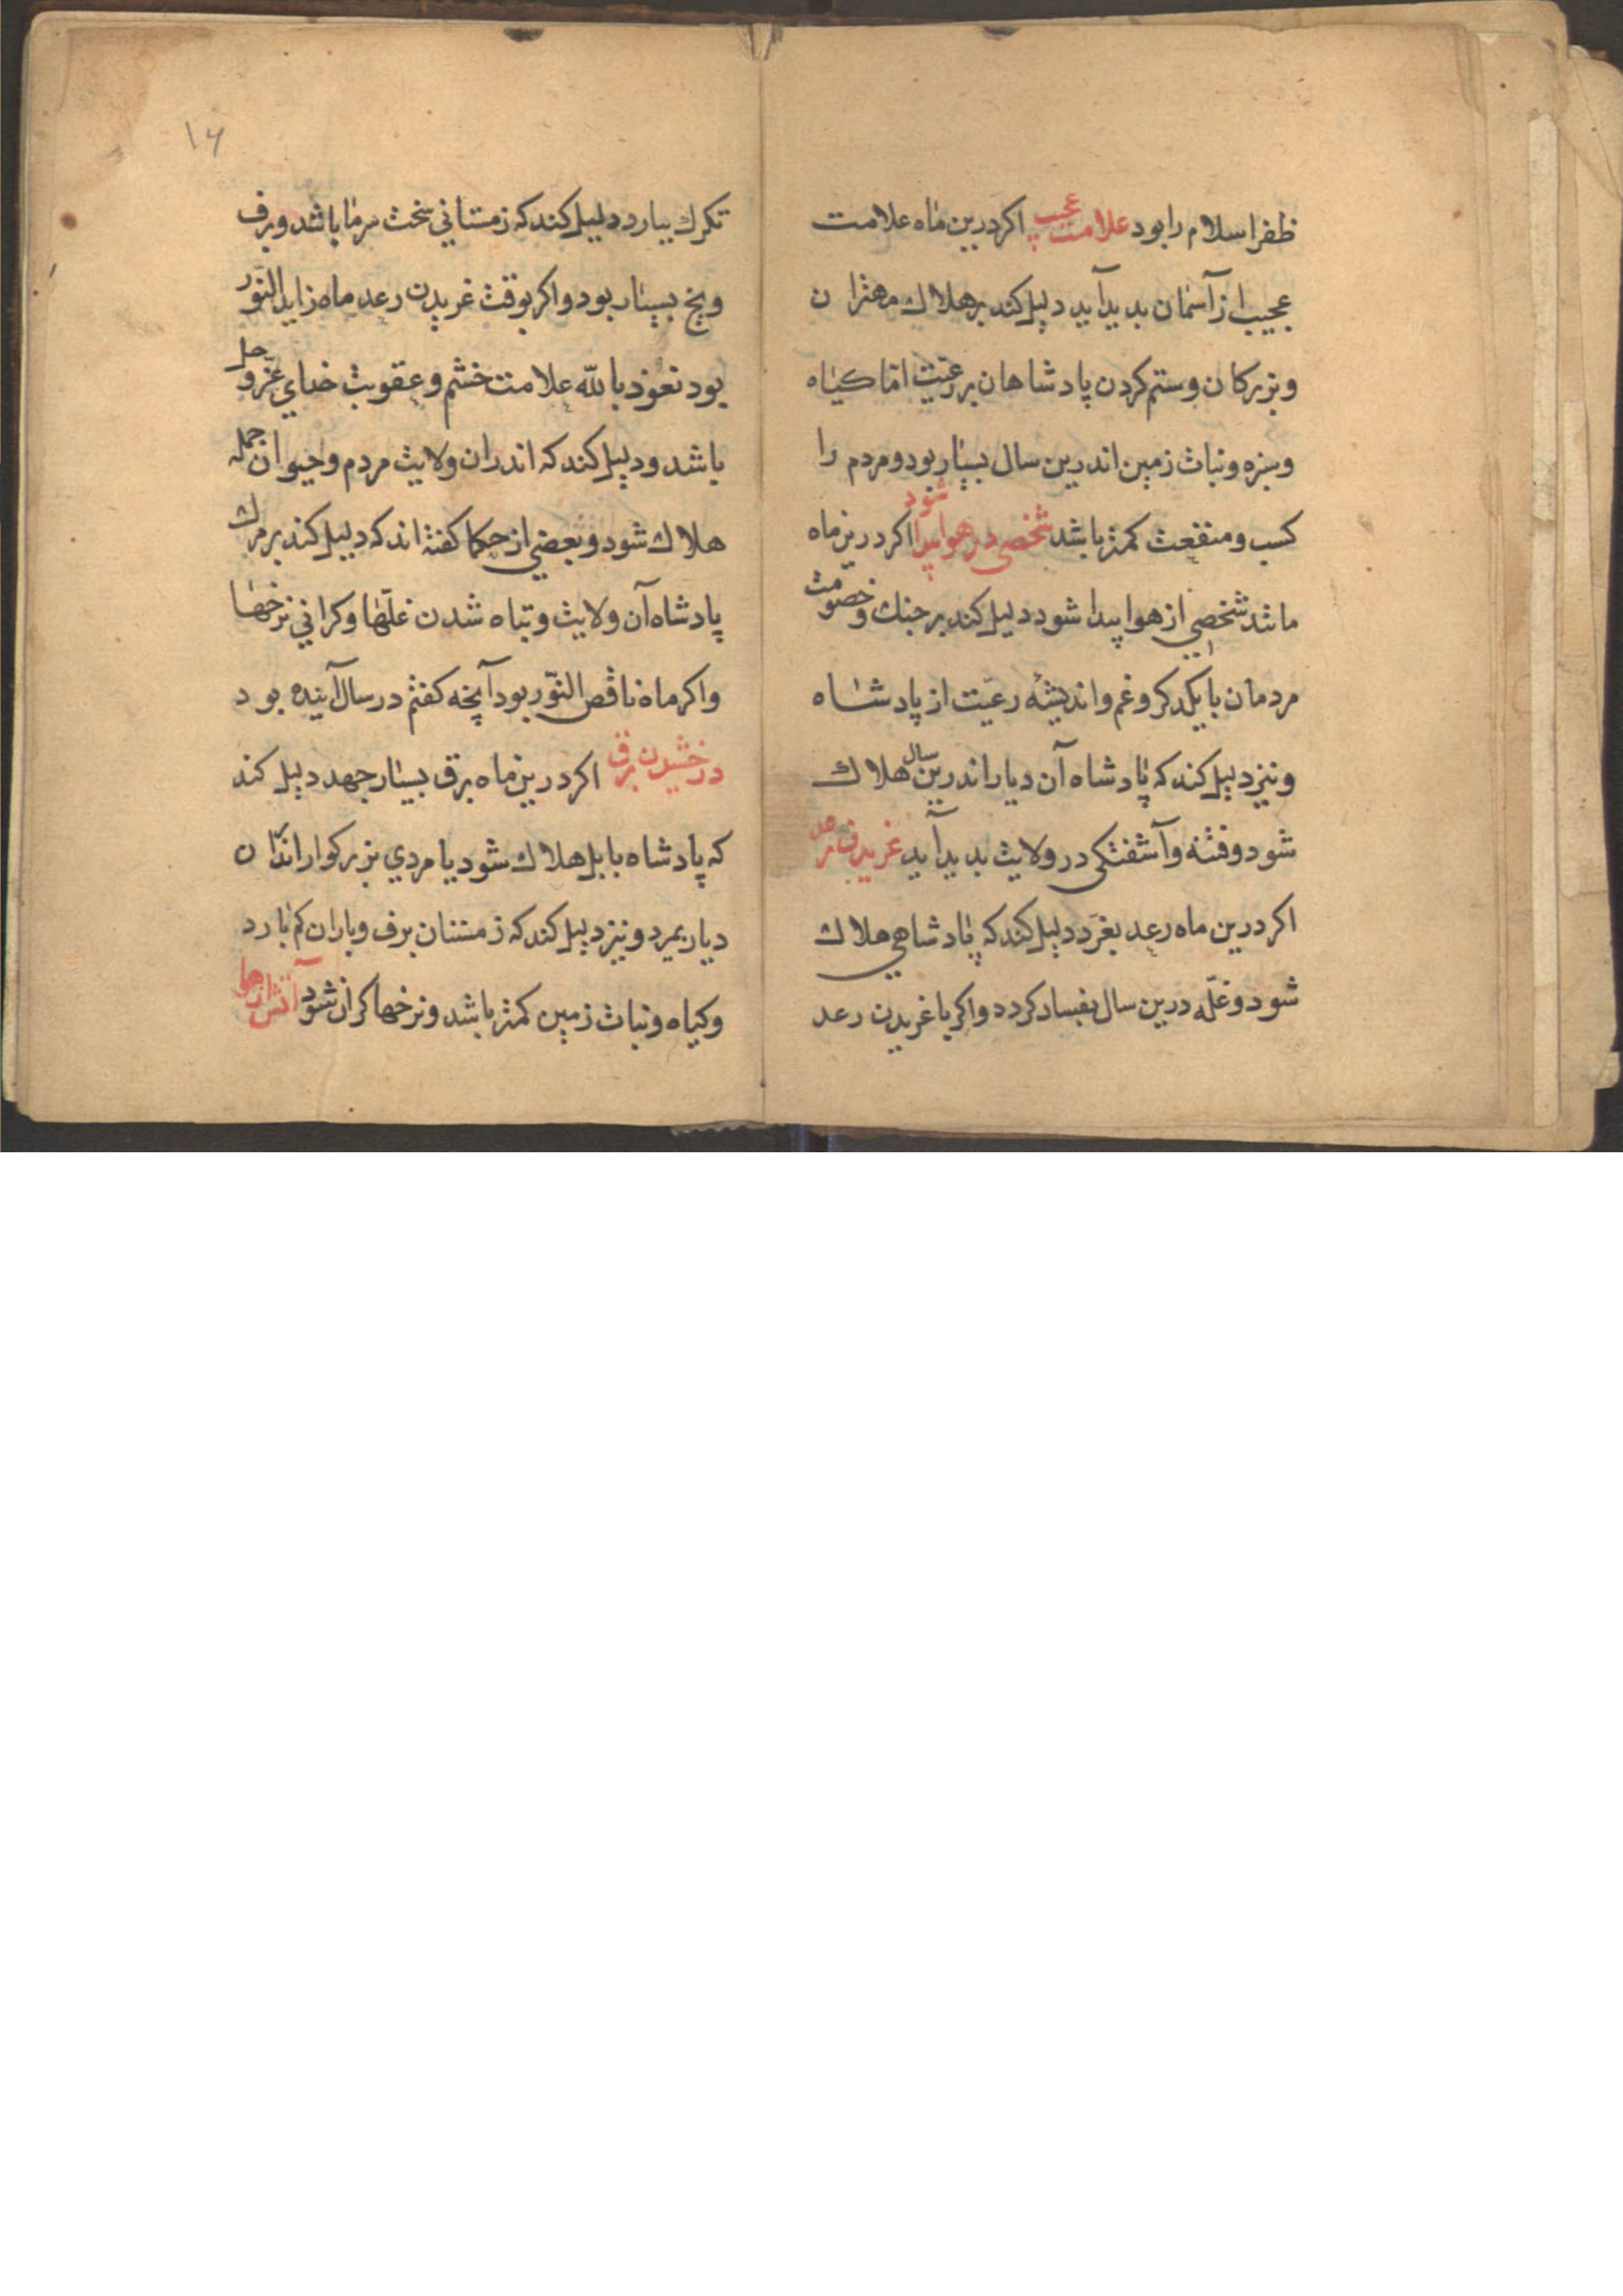 ظفر اسلام را بود علامت عجیب اکر درین ماه علامت
عجیب از آسمان بدید آید دلیل کند بر هلاك مهتران
و بزرکان و ستم کردن پادشاهان بر رعیت اما کیاه
و سبزه و نبات زمین اندرین سال بسیار بود و مردم را
کسب و منفعت کمتر باشد شخصی در هوا پیدا شود اکر درین ماه
مانند شخصی از هوا پیدا شود دلیل کند بر جنك و خصومت
مردمان با یکدکر و غم و اندیشه رعیت از پادشاه
و نیز دلیل کند که پادشاه آن دیار اندرین سال هلاك
شود و فتنه و آشفتکی در ولایت بدید آید غریدن رعد
اکر درین ماه رعد بغرد دلیل کند که پادشاهی هلاك
شود و غلّه درین سال بفساد کردد و اکر با غریدن رعد
۱۶
تکرك ببارد دلیل کند که زمستانی سخت سرما باشد و برف
و یخ بسیار بود و اکر بوقت غریدن رعد ماه زاید النّور
بود نعوذ بالله علامت خشم و عقوبت خدای عزّ و جل
باشد و دلیل کند که اندران ولایت مردم و حیوان جمله
هلاك شود و بعضی از حکما کفته اند که دلیل کند بر مرك
پادشاه آن ولایت و تباه شدن غلّها و کرانی نرخها
و اکر ماه ناقص النّور بود آنچه کفتم در سال آینده بود
درخشیدن برق اکر درین ماه برق بسیار جهد دلیل کند
که پادشاه بابل هلاك شود یا مردی بزرکوار از آن
دیار بمیرد و نیز دلیل کند که زمستان برف و باران کم بارد
و کیاه و نبات زمین کمتر باشد و نرخها کران شود آتش از هوا